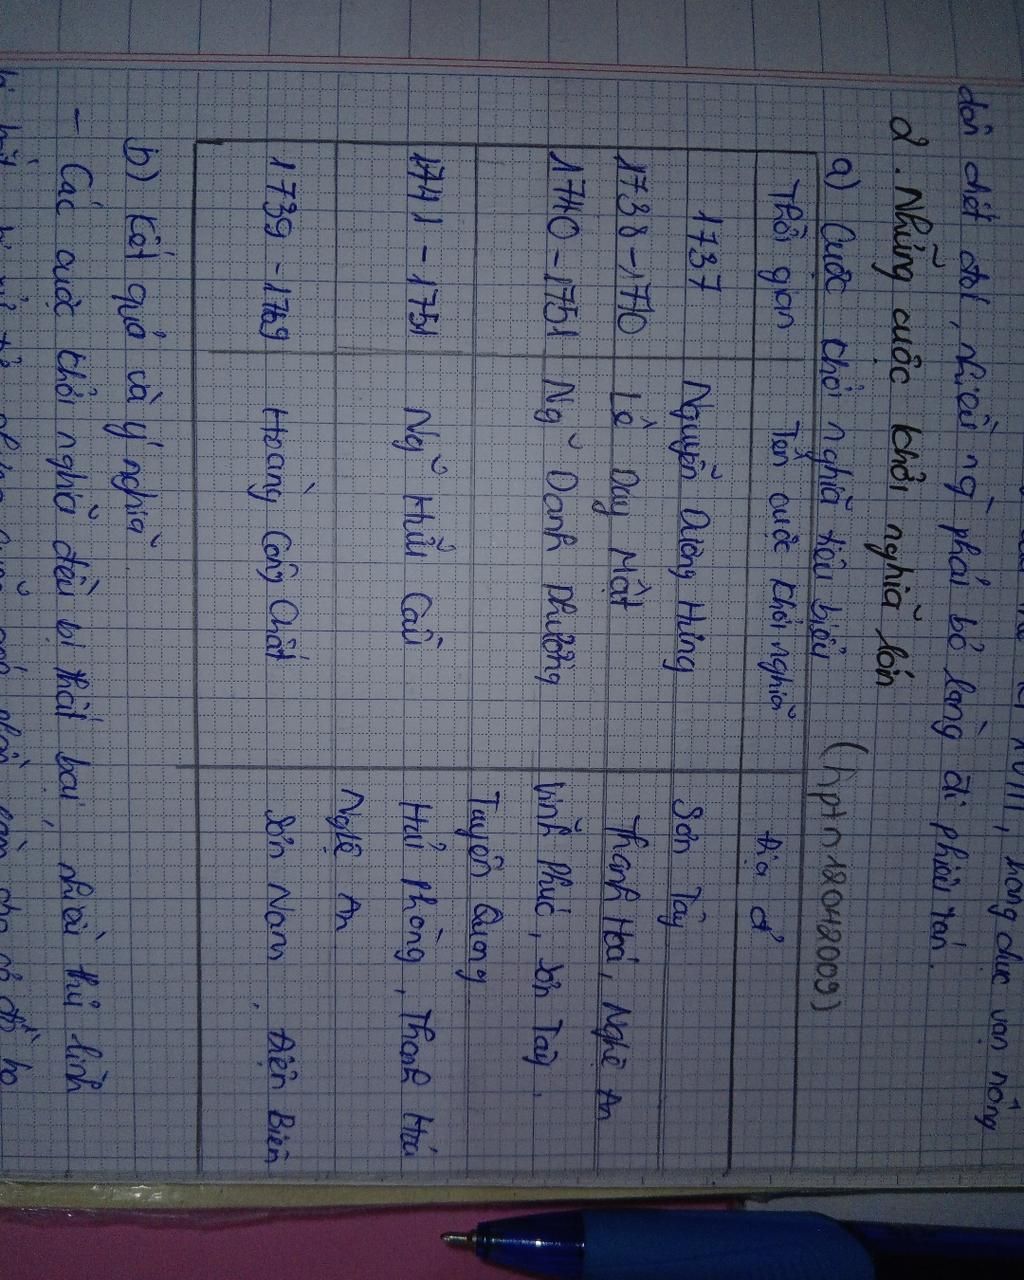 XVIII, hàng chục vạn nông
dân chết đói, nhiều ng phải bỏ làng đi phiêu tán.
2. Những cuộc khởi nghĩa lớn
a) Cuộc khởi nghĩa tiêu biểu (hptn18042009)
Thời gian Tên cuộc khởi nghĩa Địa đ'
1737 Nguyễn Dương Hưng Sơn Tây
1738-1770 Lê Duy Mật Thanh Hoá, Nghệ An
1740-1751 Ng~ Danh Phương Vĩnh Phúc, Sơn Tây,
Tuyên Quang
1741-1751 Ng~ Hữu Cầu Hải Phòng, Thanh Hoá
Nghệ An
1739-1769 Hoàng Công Chất Sơn Nam, Điện Biên
b) Kết quả và ý nghĩa
- Các cuộc khởi nghĩa đều bị thất bại, nhiều thủ lĩnh